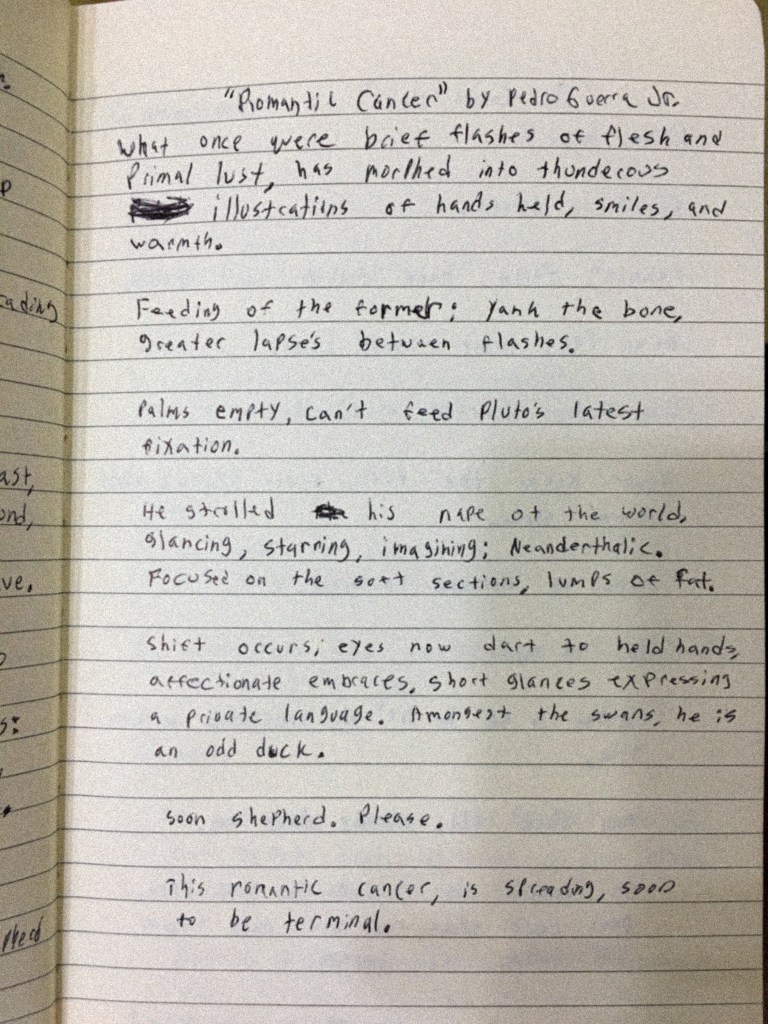 "Romantic Cancer" by Pedro Guerra Jr.
What once were brief flashes of flesh and
Primal lust, has morphed into thunderous
illustrations of hands held, smiles, and
warmth.
Feeding of the former; yank the bone,
greater lapse's between flashes.
Palms empty, can't feed Pluto's latest
fixation.
He strolled his nape of the world,
glancing, starring, imagining; Neanderthalic.
Focused on the soft sections, lumps of fat.
Shift occurs; eyes now dart to held hands,
affectionate embraces, short glances expressing
a private language. Amongest the swans, he is
an odd duck.
Soon shepherd. Please.
This romantic cancer, is spreading, soon
to be terminal.